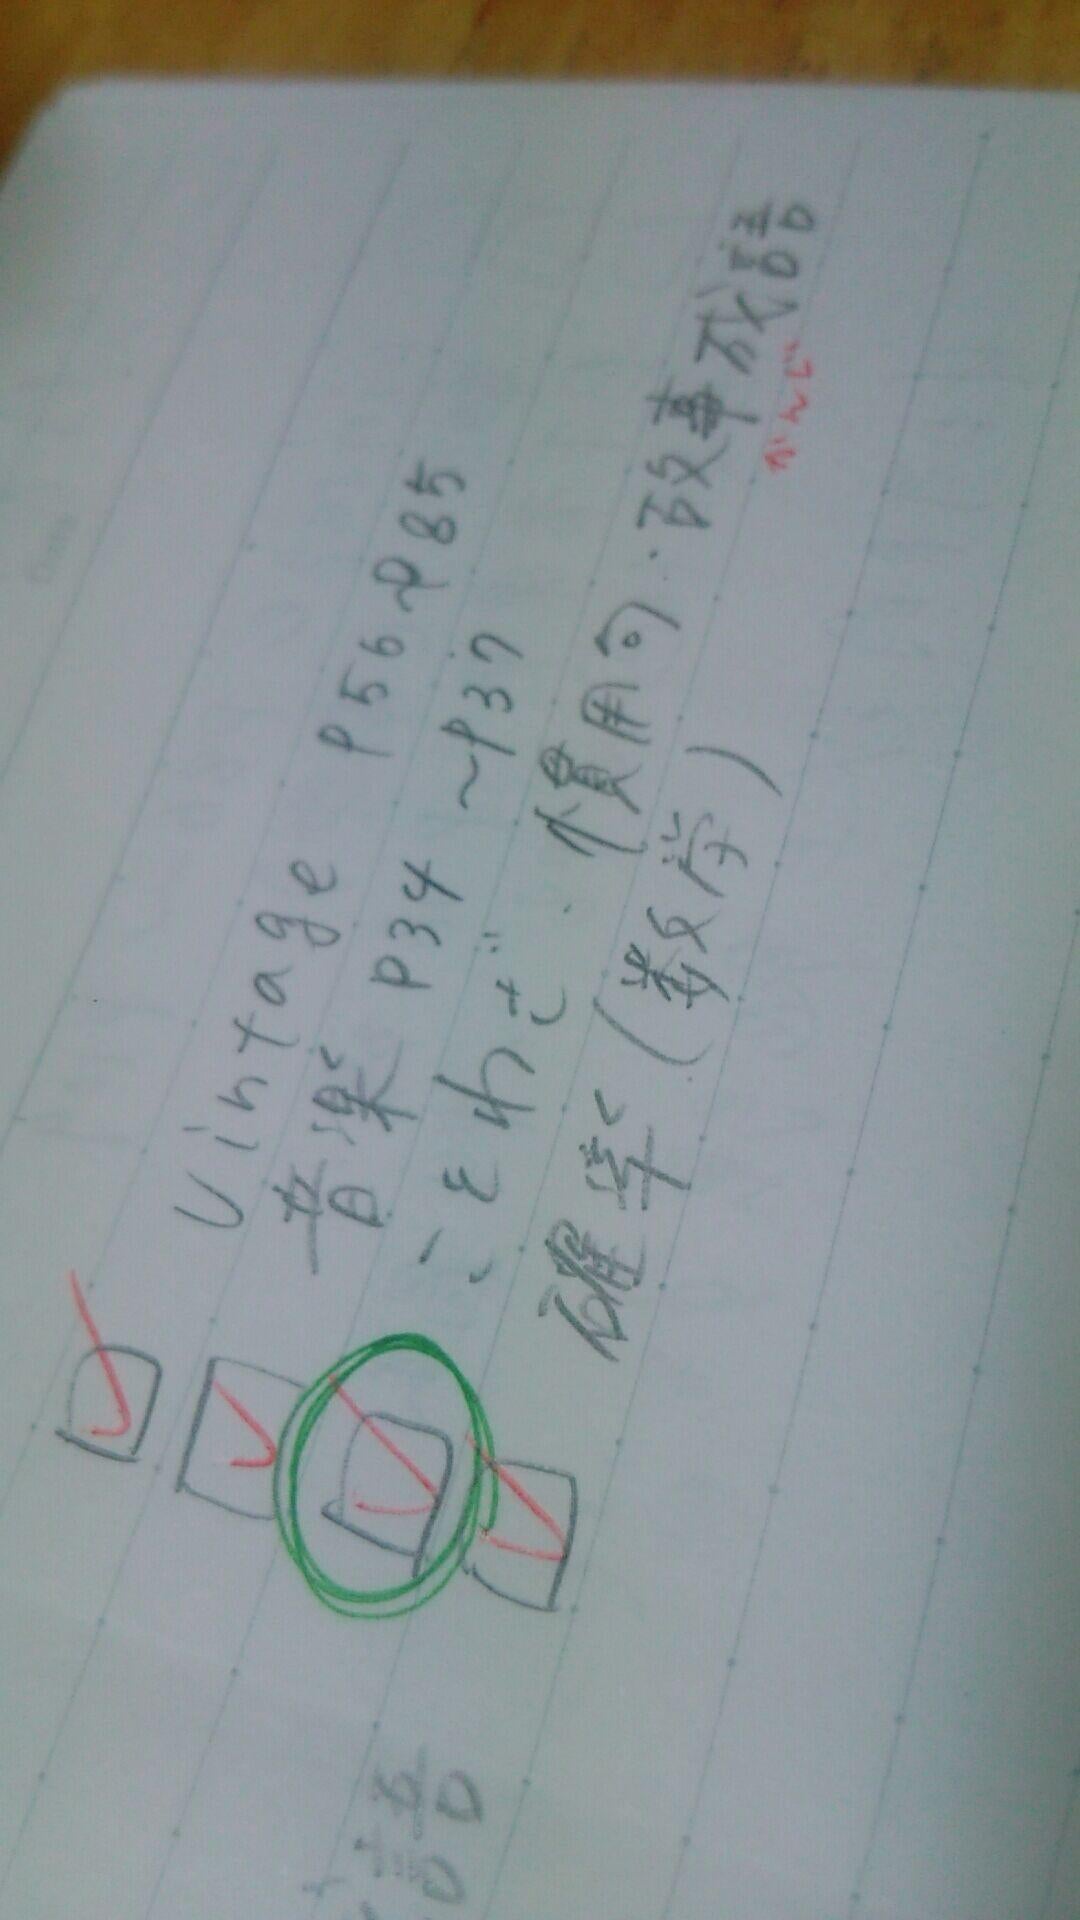 Vintage P56~P85
音楽 P34~P37
ことわざ・慣用句・故事成語
かんじ
確率(数学)
語